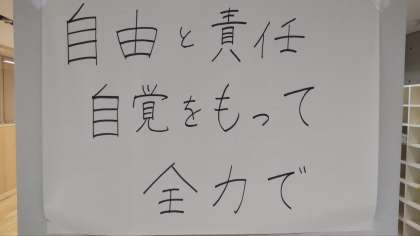 自由と責任
自覚をもって
全力で